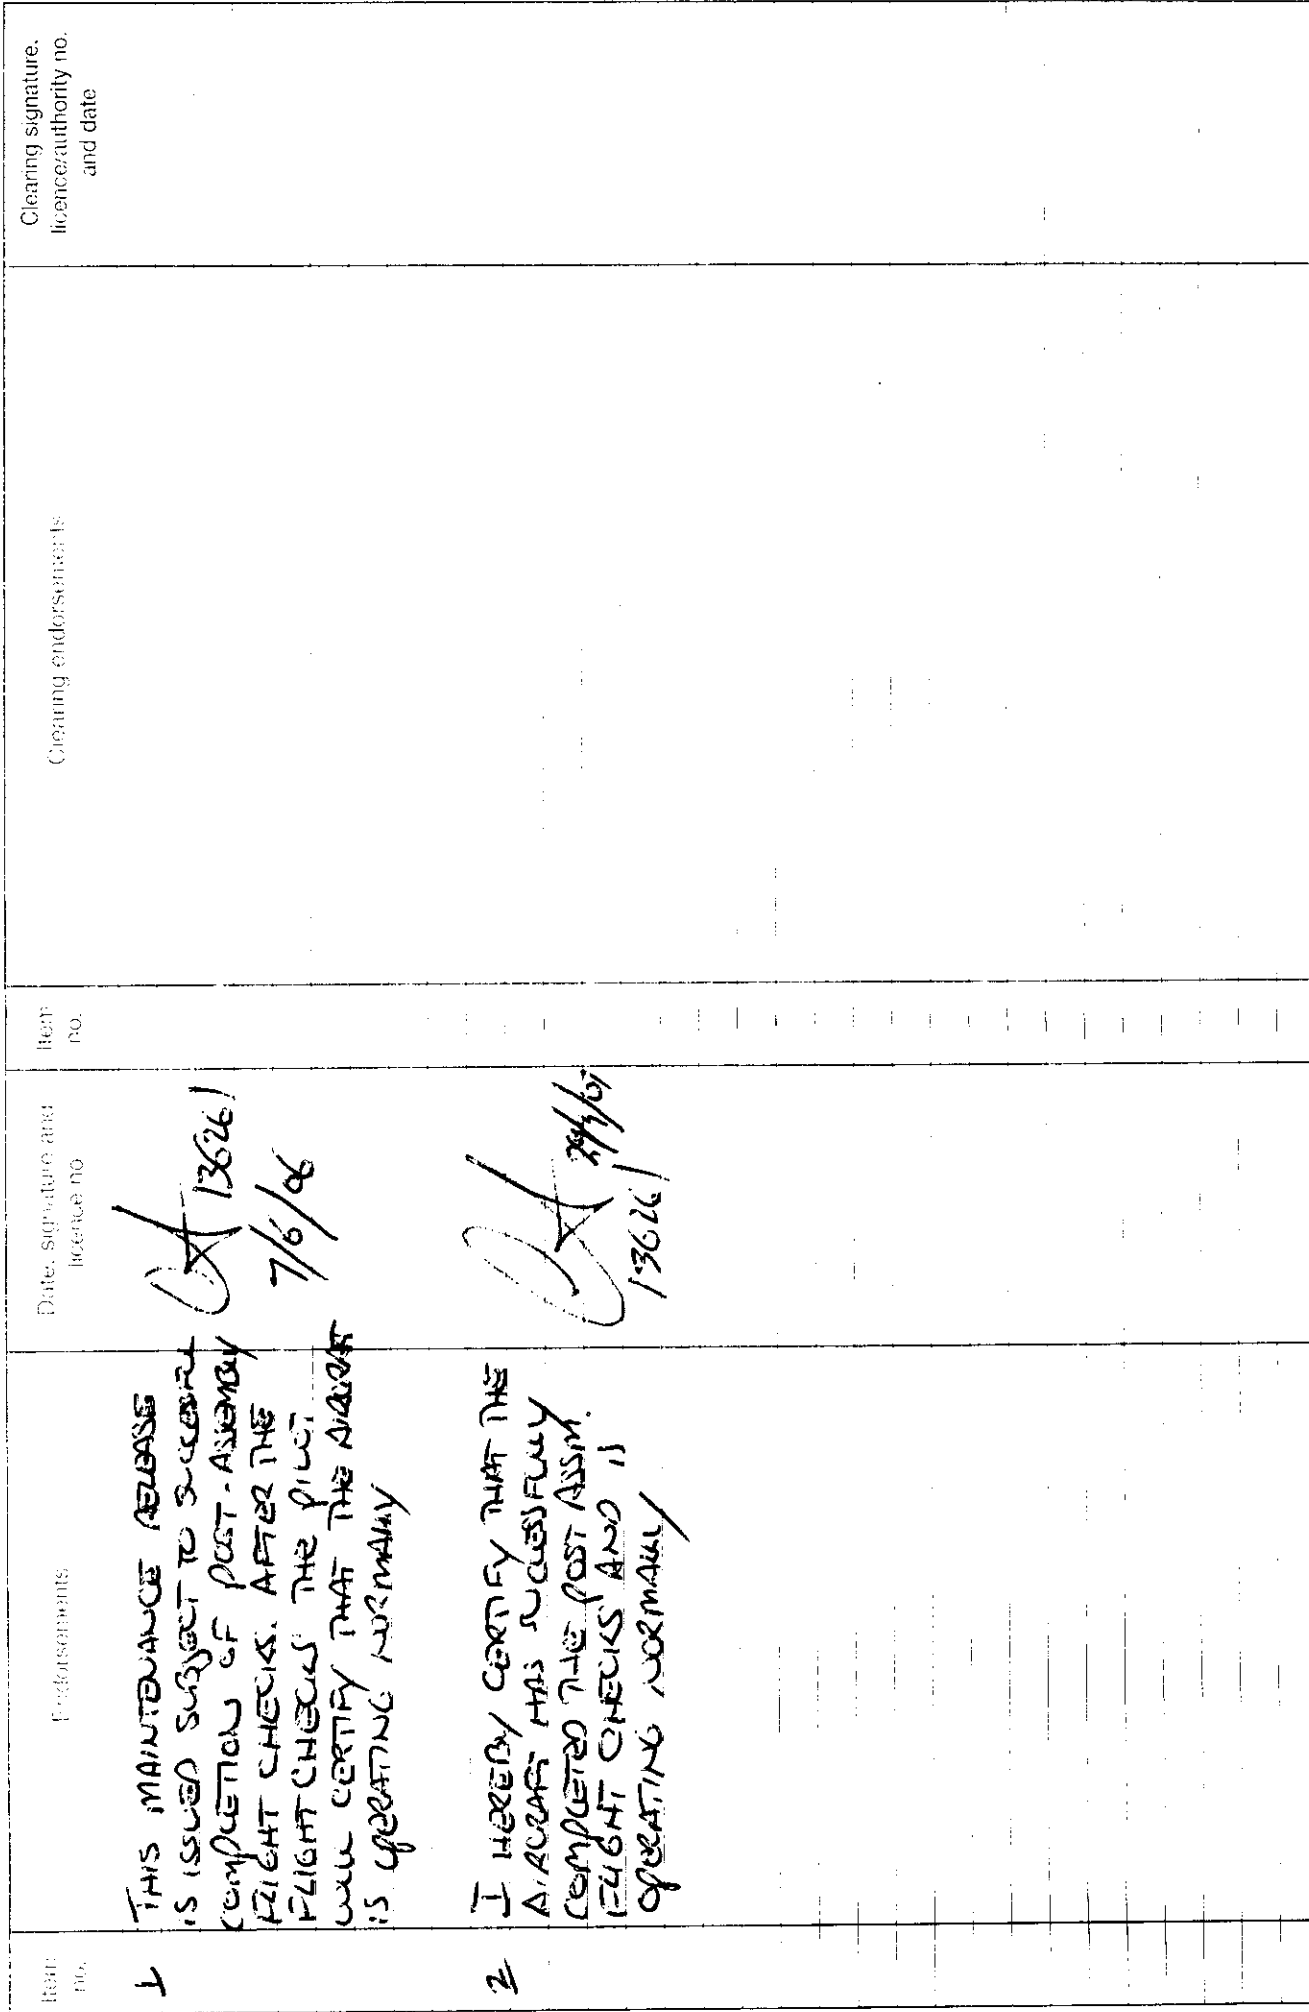 Item no.
Endorsements
Date, signature and licence no
Item no.
Clearing endorsements
Clearing signature, licence/authority no. and date
1
THIS MAINTENANCE RELEASE
IS ISSUED SUBJECT TO SUCCESSFUL
COMPLETION OF POST-ASSEMBLY
FLIGHT CHECKS. AFTER THE
FLIGHT CHECKS THE PILOT
WILL CERTIFY THAT THE AIRCRAFT
IS OPERATING NORMALLY
136261
7/6/06
2
I HEREBY CERTIFY THAT THE
AIRCRAFT HAS SUCCESSFULLY
COMPLETED THE POST ASSM.
FLIGHT CHECKS AND IS
OPERATING NORMALLY
136261